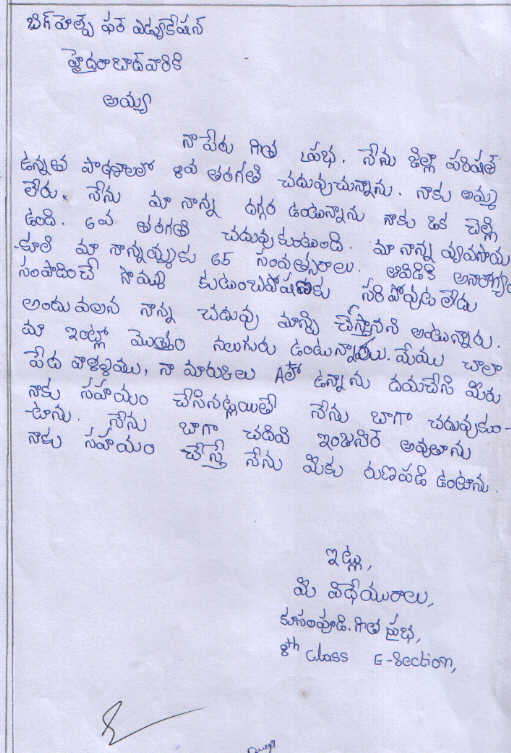 బిగ్ హెల్ప్ ఫర్ ఎడ్యుకేషన్
హైద్రాబాద్ వారికి
అయ్య
నా పేరు గీత ప్రభ. నేను జిల్లా పరిషత్
ఉన్నత పాఠశాలలో 8వ తరగతి చదువుచున్నాను. నాకు అమ్మ
లేరు. నేను మా నాన్న దగ్గర ఉంటున్నాను నాకు ఒక చెల్లి
ఉంది. 6వ తరగతి చదువుకుంటుంది. మా నాన్న వ్యవసాయ
-కూలి మా నాన్నయ్యకు 65 సంవత్సరాలు. అనారోగ్యం
సంపాదించే సొమ్ము కుటుంబపోషణకు సరిపోవుట లేదు
అందు వలన నాన్న చదువు మాన్పి చేస్తానని అంటున్నారు.
మా ఇంట్లో మొత్తం నలుగురు ఉంటున్నాము. మేము చాలా
పేద వాళ్ళము, నా మార్కులు Aలో ఉన్నాను దయచేసి మీరు
నాకు సహాయం చేసినట్లయితే నేను బాగా చదువుకుం-
-టాను. నేను బాగా చదివి ఇంజనీర్ అవుతాను
నాకు సహాయం చేస్తే నేను మీకు రుణపడి ఉంటాను.
ఇట్లు,
మీ విధేయురాలు,
గీత ప్రభ,
8th class E-Section,